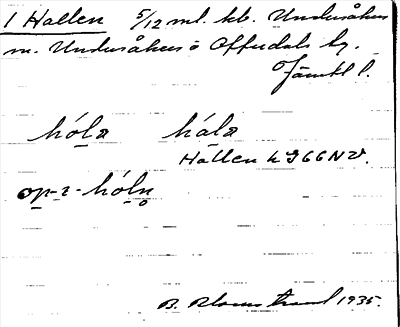 1 Hallen 5/12 ml. kb. Undersåkers
m. Undersåkers o Offerdals tg.
Jämtl l.
hóla hála
Hallen h 366 NV.
op-i-hóln
B. Blomstrand 1935.